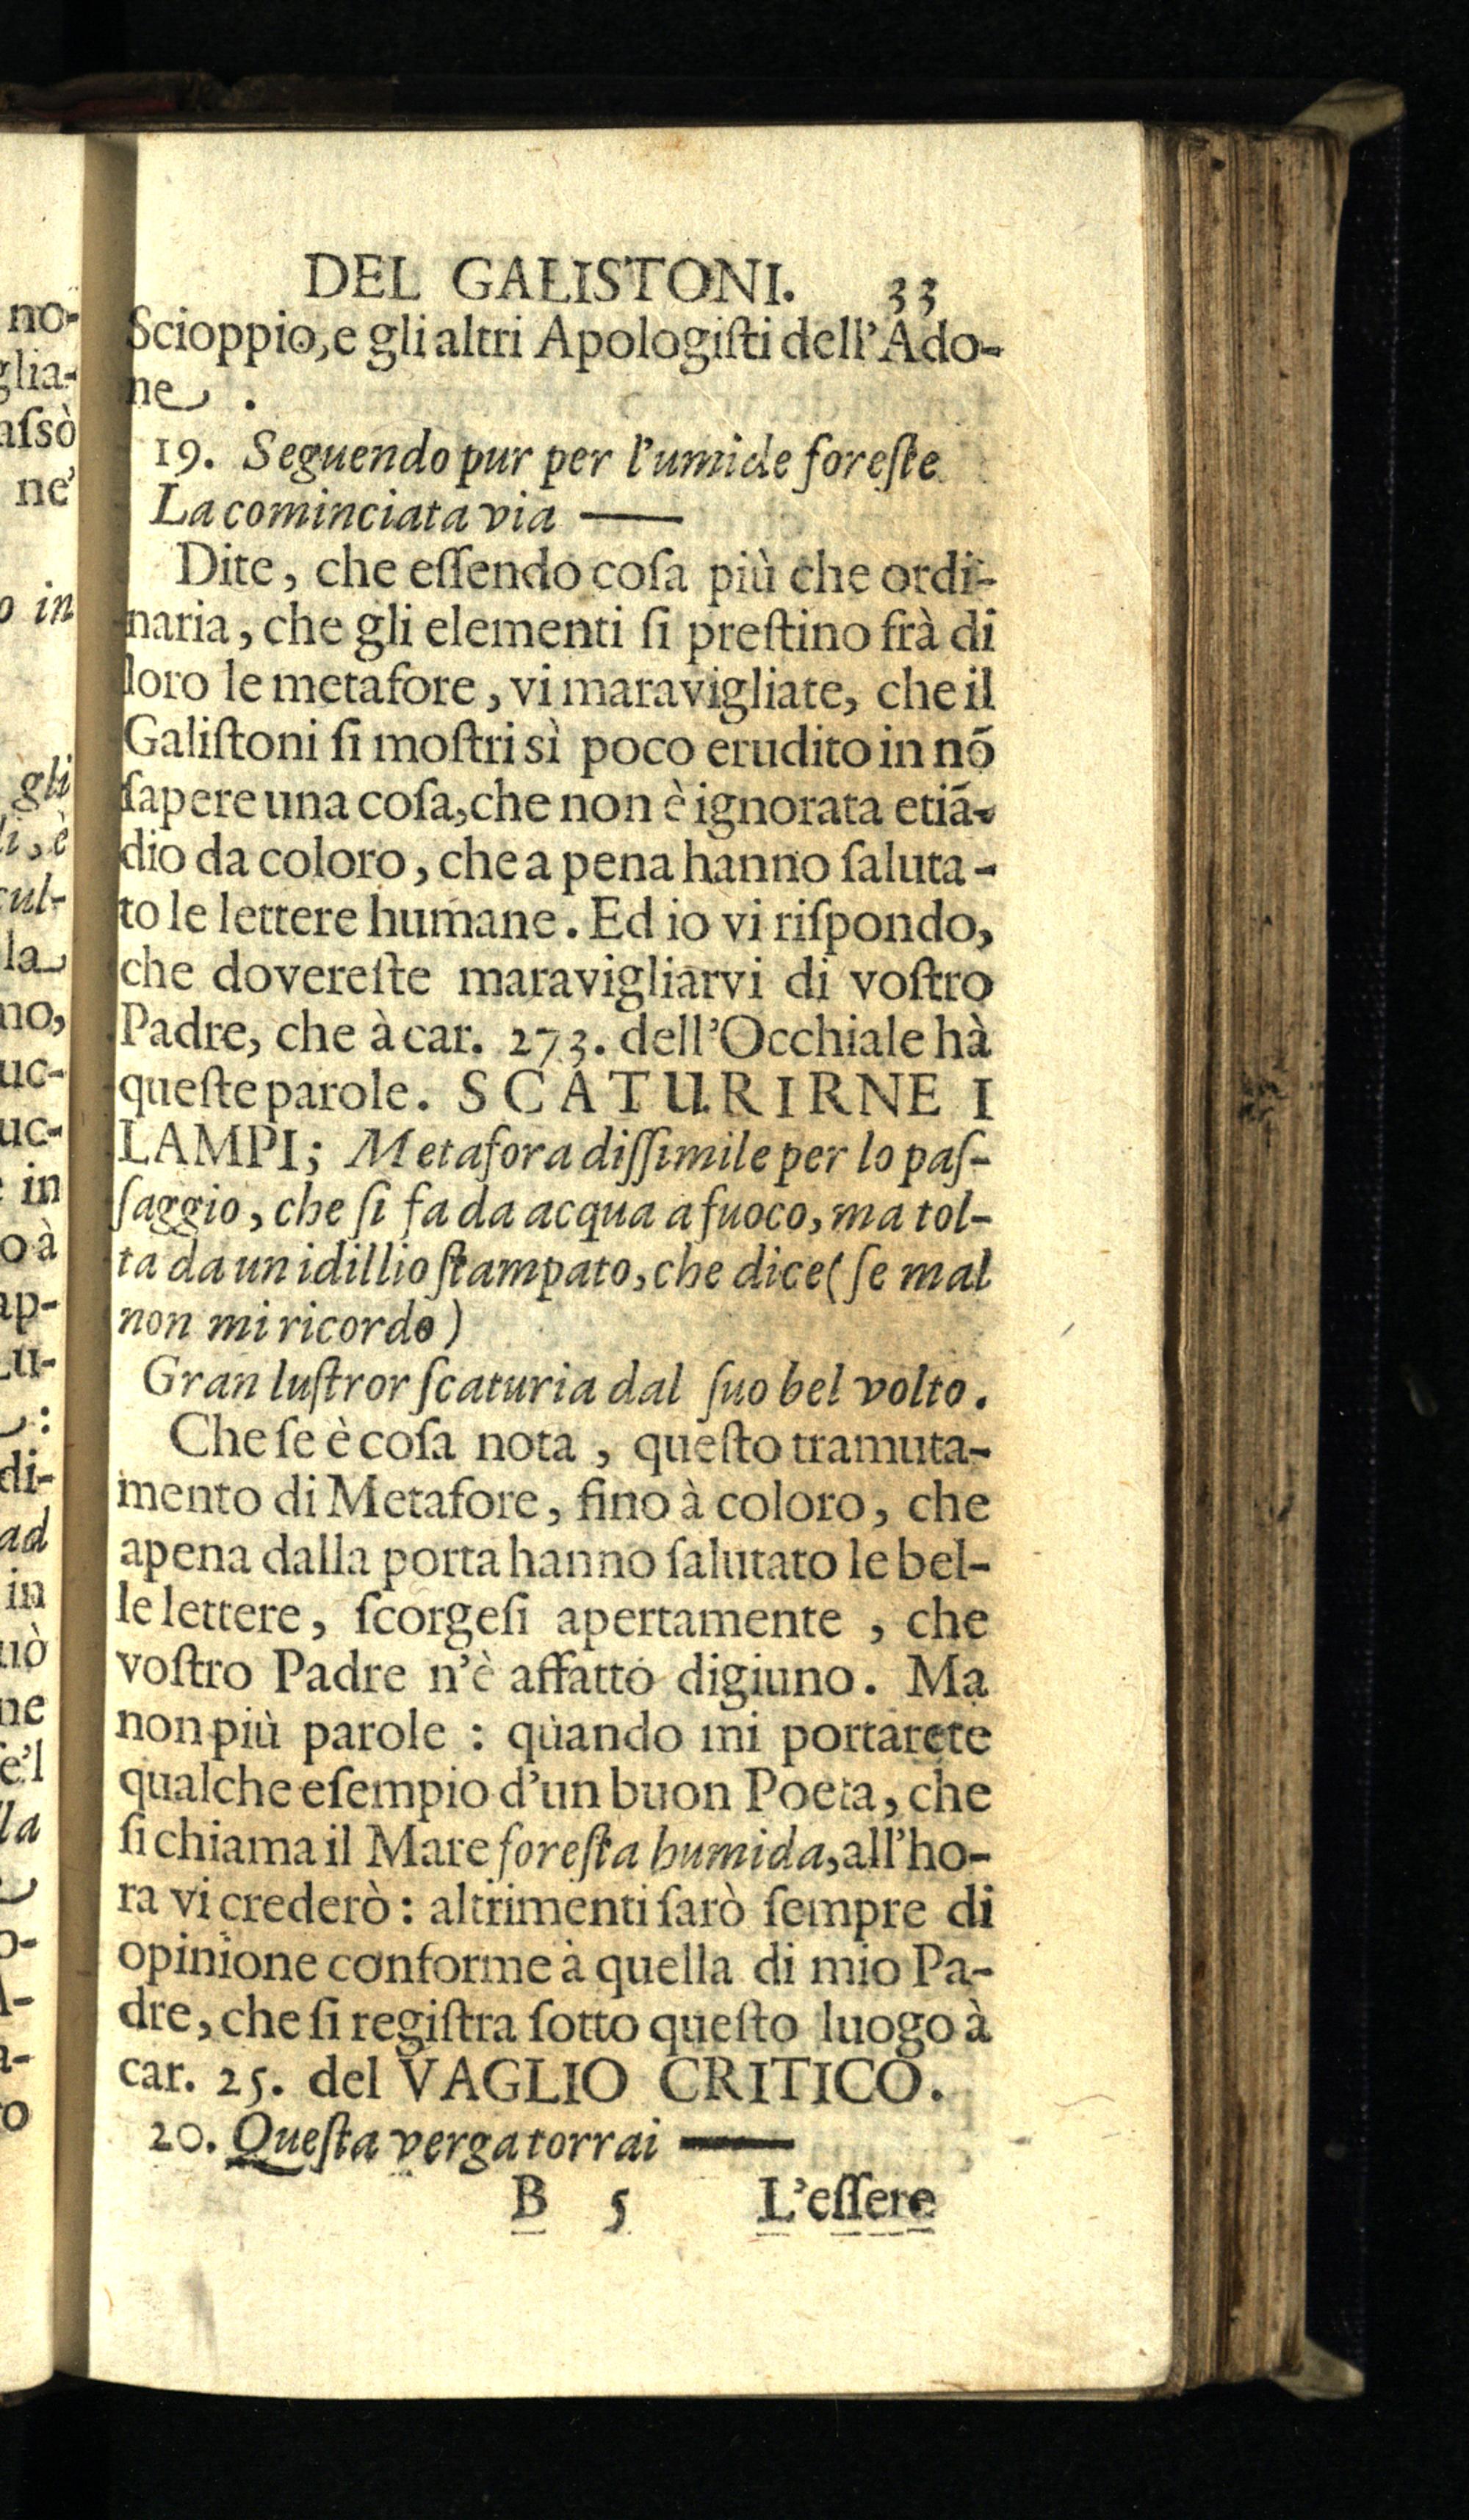 DEL GALISTONI. 33
Scioppio, e gli altri Apologiſti dell'Ado-
ne.
19. Seguendo pur per l'umide foreſte
La cominciata via ——
Dite, che eſſendo coſa più che ordi-
naria, che gli elementi ſi preſtino frà di
loro le metafore, vi maravigliate, che il
Galiſtoni ſi moſtri sì poco erudito in nõ
ſapere una coſa, che non è ignorata etiã-
dio da coloro, che a pena hanno ſaluta-
to le lettere humane. Ed io vi riſpondo,
che dovereſte maravigliarvi di voſtro
Padre, che à car. 273. dell'Occhiale hà
queſte parole. SCATURIRNE I
LAMPI; Metafora diſſimile per lo paſ-
ſaggio, che ſi fa da acqua a fuoco, ma tol-
ta da un idillio ſtampato, che dice (ſe mal
non mi ricordo)
Gran luſtror ſcaturia dal ſuo bel volto.
Che ſe è coſa nota, queſto tramuta-
mento di Metafore, fino à coloro, che
apena dalla porta hanno ſalutato le bel-
le lettere, ſcorgeſi apertamente, che
voſtro Padre n'è affatto digiuno. Ma
non più parole: quando mi portarete
qualche eſempio d'un buon Poeta, che
ſi chiama il Mare foreſta humida, all'ho-
ra vi crederò: altrimenti ſarò ſempre di
opinione conforme à quella di mio Pa-
dre, che ſi regiſtra ſotto queſto luogo à
car. 25. del VAGLIO CRITICO.
20. Queſta verga torrai ——
B 5 L'eſſere